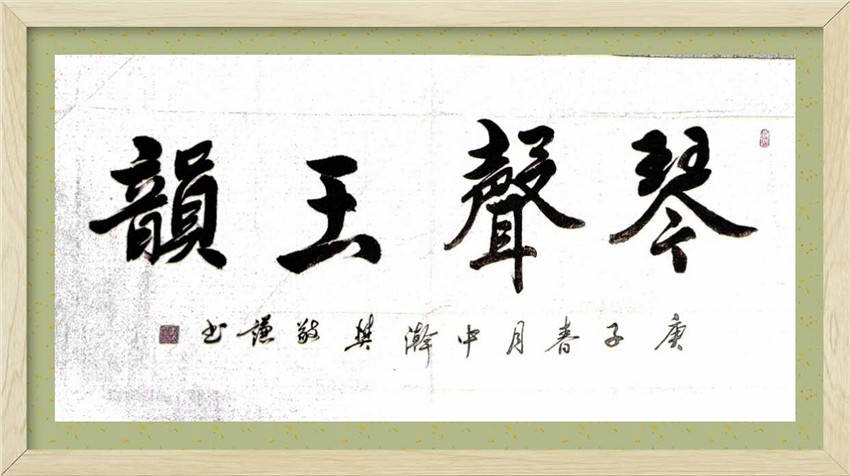 琴聲玉韻
庚子春月中澣樊敬謙书